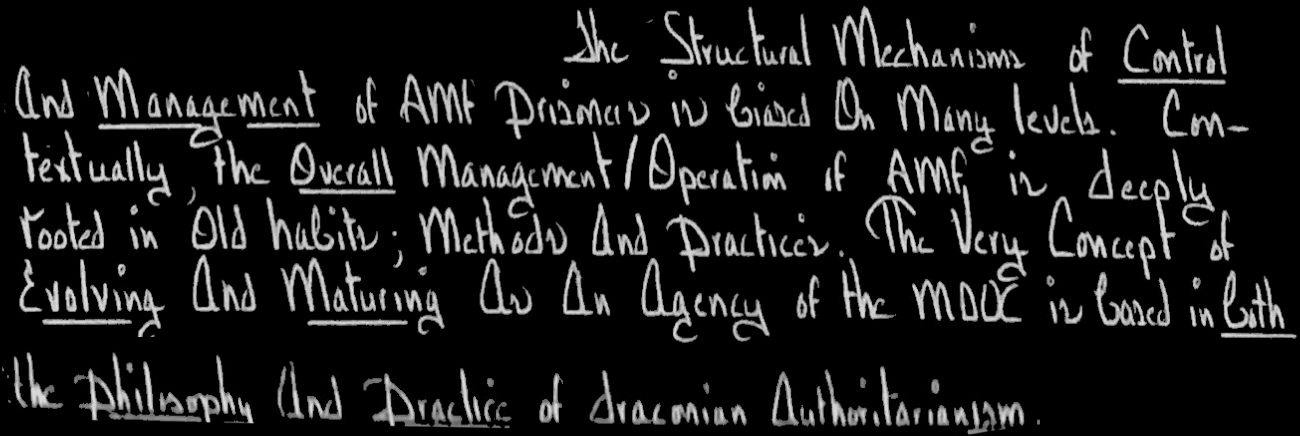 The Structural Mechanisms of Control
And Management of AMF Prisoners is biased On Many levels. Con-
textually, the Overall Management/Operation of AMF, is deeply
rooted in Old habits; Methods And Practices. The Very Concept of
Evolving And Maturing As An Agency of the MDOC is based in both
the Philosophy And Practice of draconian Authoritarianism.